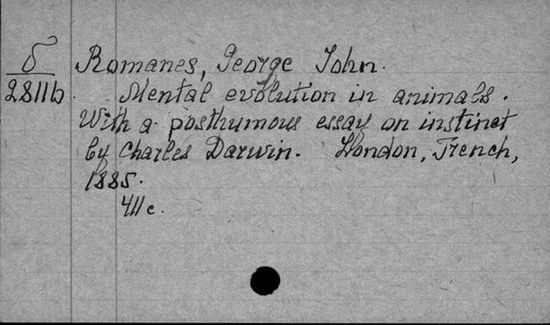 δ Romanes, George John.
2811b Mental evolution in animals.
With a posthumous essay on instinct
by Charles Darwin. London, Trench,
1885.
411c.